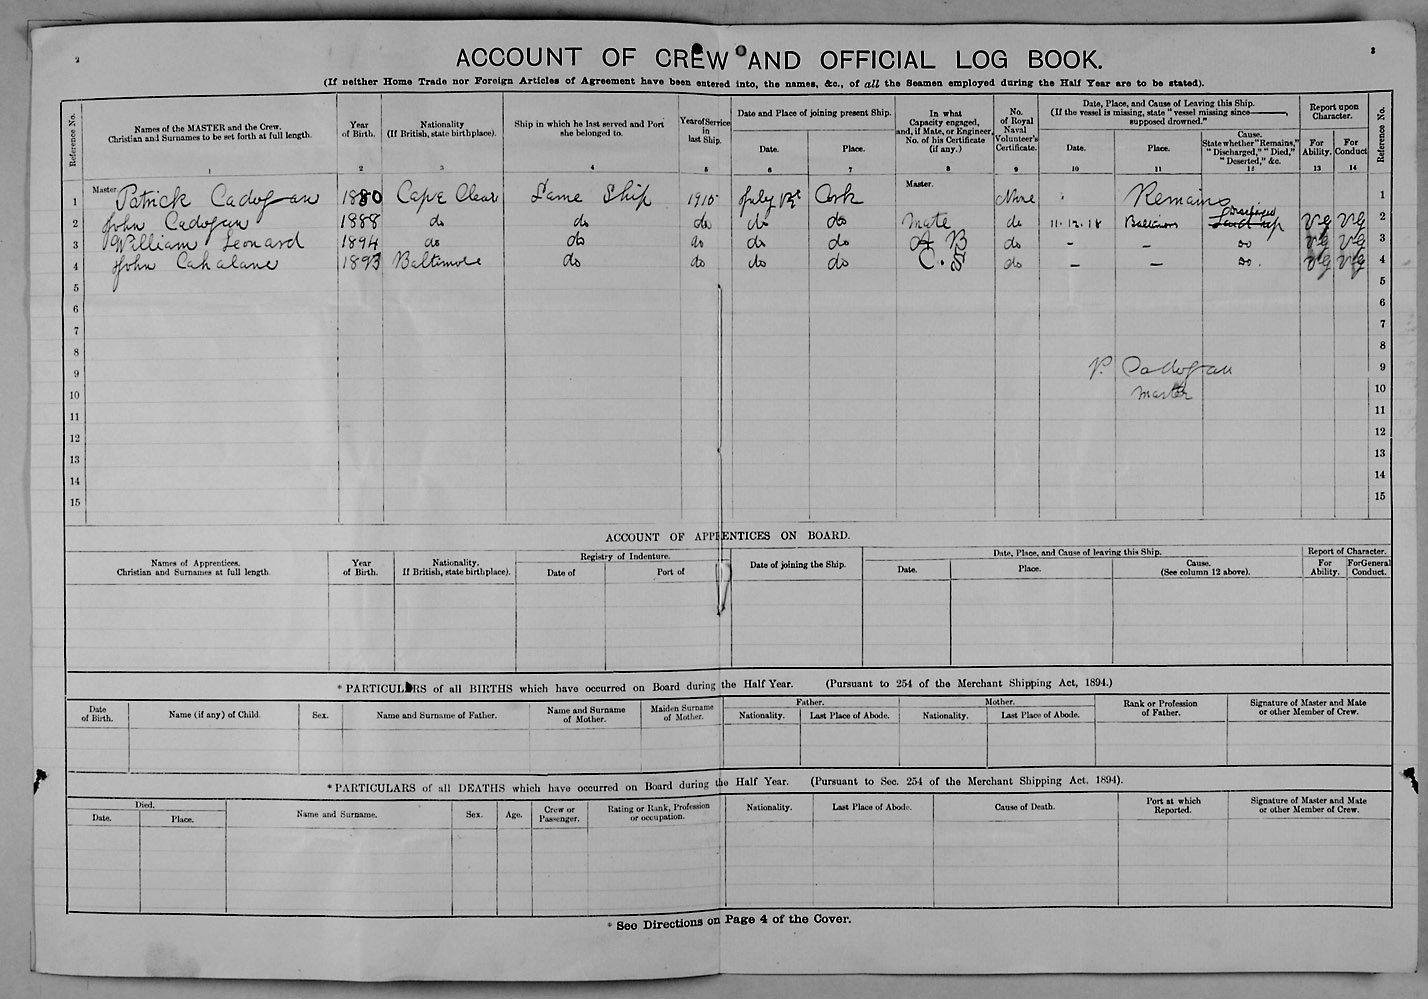 2
3
ACCOUNT OF CREW AND OFFICIAL LOG BOOK.
(If neither Home Trade nor Foreign Articles of Agreement have been entered into, the names, &c., of all the Seamen employed during the Half Year are to be stated).
Reference No. Names of the MASTER and the Crew. Christian and Surnames to be set forth at full length. Year of Birth. Nationality (If British, state birthplace). Ship in which he last served and Port she belonged to. Year of Service in last Ship. Date and Place of joining present Ship. Date. Place. In what Capacity engaged, and, if Mate, or Engineer, No. of his Certificate (if any). No. of Royal Naval Volunteer's Certificate. Date, Place, and Cause of Leaving this Ship. (If the vessel is missing, state "vessel missing since———, supposed drowned." Date. Place. Cause. State whether "Remains," "Discharged," "Died," "Deserted," &c. Report upon Character. For Ability. For Conduct Reference No.
1 2 3 4 5 6 7 8 9 10 11 12 13 14
1 Master. Patrick Cadogan 1880 Cape Clear Same Ship 1915 July Cork Master. None Remains 1
2 John Cadogan 1888 do do do do do Mate do 11.12.18 Baltimore VG VG 2
3 William Leonard 1894 do do do do do A B do – – Do VG VG 3
4 John Cahalane 1893 Baltimore do do do do do – – Do. VG VG 4
5 5
6 6
7 7
8 8
9 P. Cadogan 9
10 Master 10
11 11
12 12
13 13
14 14
15 15
ACCOUNT OF APPRENTICES ON BOARD.
Names of Apprentices. Christian and Surnames at full length. Year of Birth. Nationality. If British, state birthplace). Registry of Indenture. Date of Port of Date of joining the Ship. Date, Place, and Cause of leaving this Ship. Date. Place. Cause. (See column 12 above). Report of Character. For Ability. For General Conduct.
* PARTICULARS of all BIRTHS which have occurred on Board during the Half Year. (Pursuant to 254 of the Merchant Shipping Act, 1894.)
Date of Birth. Name (if any) of Child. Sex. Name and Surname of Father. Name and Surname of Mother. Maiden Surname of Mother. Father. Nationality. Last Place of Abode. Mother. Nationality. Last Place of Abode. Rank or Profession of Father. Signature of Master and Mate or other Member of Crew.
* PARTICULARS of all DEATHS which have occurred on Board during the Half Year. (Pursuant to Sec. 254 of the Merchant Shipping Act. 1894).
Died. Date. Place. Name and Surname. Sex. Age. Crew or Passenger. Rating or Rank, Profession or occupation. Nationality. Last Place of Abode. Cause of Death. Port at which Reported. Signature of Master and Mate or other Member of Crew.
* See Directions on Page 4 of the Cover.